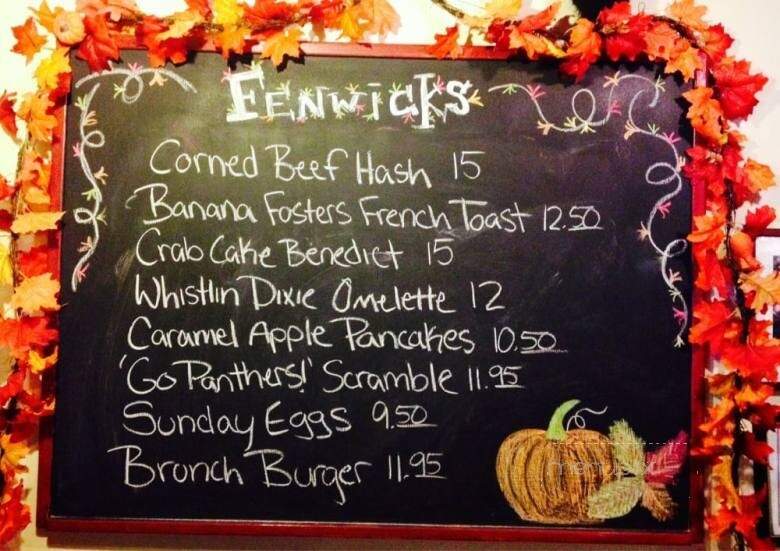 FENWICKS
Corned Beef Hash 15
Banana Fosters French Toast 12.50
Crab Cake Benedict 15
Whistlin Dixie Omelette 12
Caramel Apple Pancakes 10.50
'Go Panthers!' Scramble 11.95
Sunday Eggs 9.50
Brunch Burger 11.95